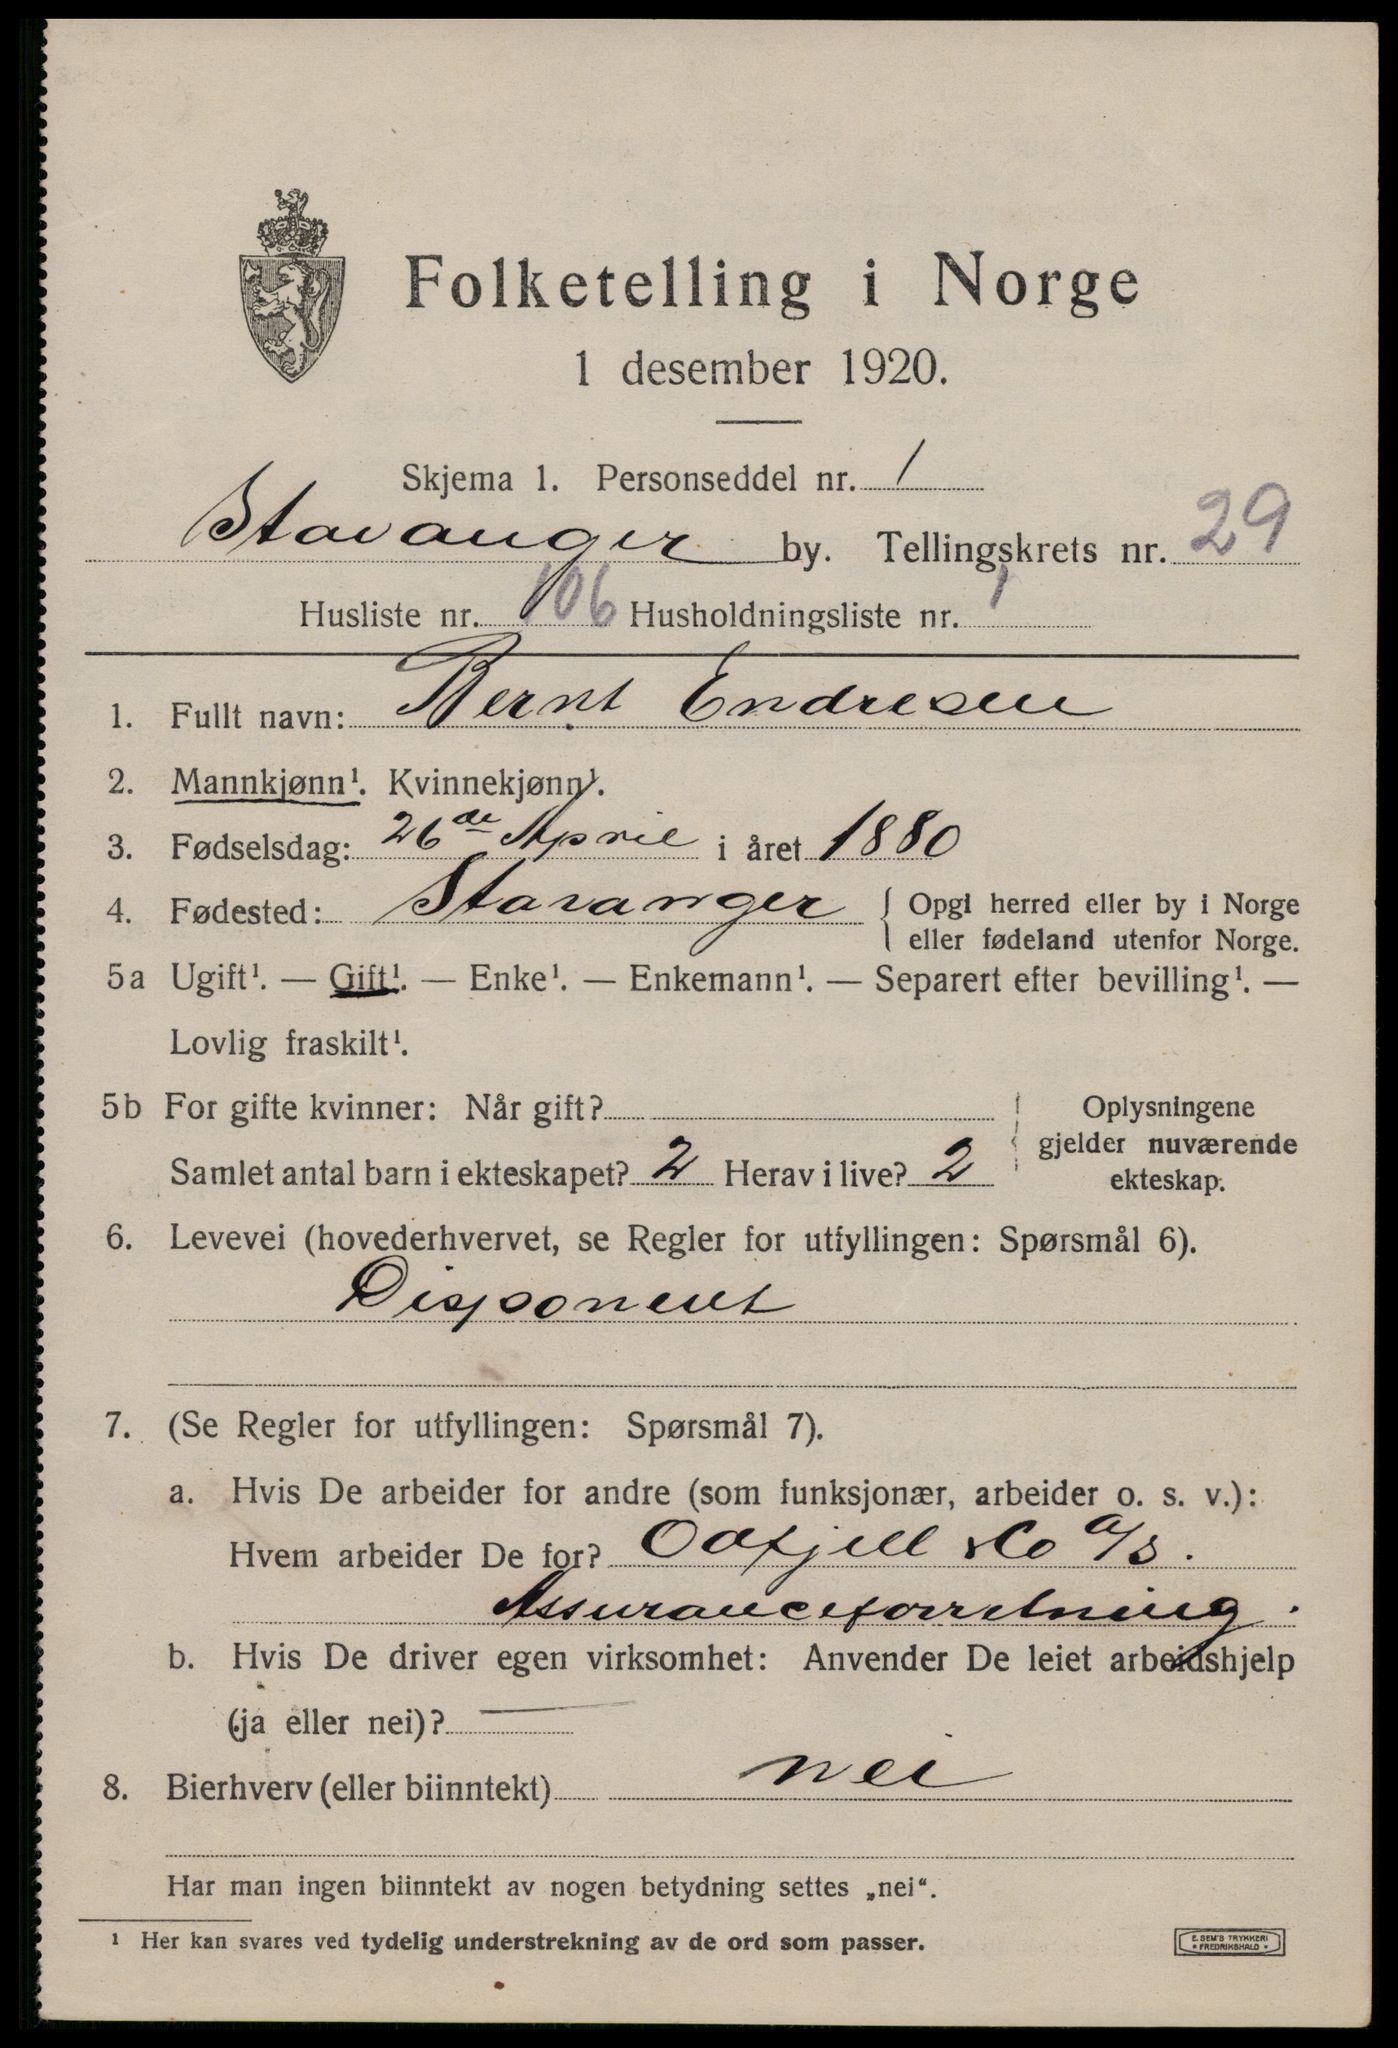 Folketelling i Norge
1 desember 1920.
Skjema 1. Personseddel nr. 1
Stavanger by. Tellingskrets nr. 29
Husliste nr. 106 Husholdningsliste nr. 1
1. Fullt navn: Bernt Endresen
2. Mannkjønn¹. Kvinnekjønn¹.
3. Fødselsdag: 26de April i året 1880
4. Fødested: Stavanger { Opgi herred eller by i Norge
eller fødeland utenfor Norge.
5a Ugift¹. — Gift¹. — Enke¹. — Enkemann¹. — Separert efter bevilling¹. —
Lovlig fraskilt¹.
5b For gifte kvinner: Når gift? Oplysningene
gjelder nuværende
Samlet antal barn i ekteskapet? 2 Herav i live? 2 ekteskap.
6. Levevei (hovederhvervet, se Regler for utfyllingen: Spørsmål 6).
Disponent
7. (Se Regler for utfyllingen: Spørsmål 7).
a. Hvis De arbeider for andre (som funksjonær, arbeider o. s. v.):
Hvem arbeider De for? Odfjell & Co a/s.
Assuranceforretning.
b. Hvis De driver egen virksomhet: Anvender De leiet arbeidshjelp
(ja eller nei)? —
8. Bierhverv (eller biinntekt) nei
Har man ingen biinntekt av nogen betydning settes „nei“.
¹ Her kan svares ved tydelig understrekning av de ord som passer.
E. SEM'S TRYKKERI
* FREDRIKSHALD *